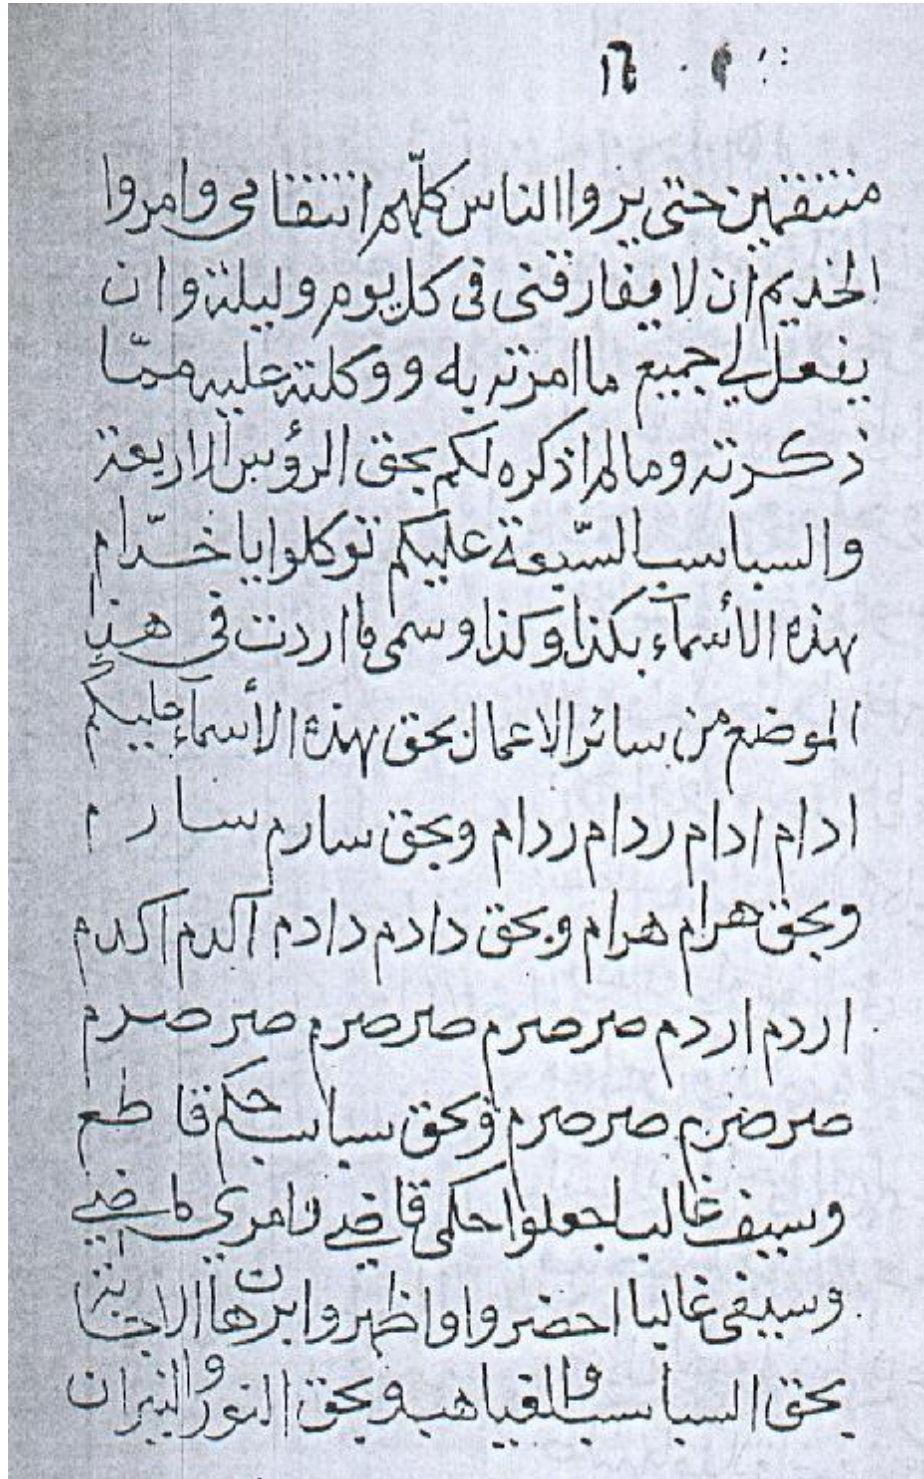 ١٦
منتقمين حتى يروا الناس كلّهم انتقامى وامروا
الخديم ان لا يفارقنى فى كل يوم وليلة وان
يفعل لي جميع ما امرته به ووكلته عليه ممّا
ذكرته وما لم اذكره لكم بحق الرؤس الاربعة
والسباسب السّبعة عليكم توكلوا يا خدّام
بهذه الأسمآء بكذا وكذا وسمى ما اردت فى هذا
الموضع من سائر الاعمال بحق بهذه الأسمآء عليكم
ادام ادام ردام ردام وبحق سارم سارم
وبحق هرام هرام وبحق دادم دادم اكدم اكدم
اردم اردم صرصرم صرصرم صرصرم
صرصرم صرصرم وبحق سباسبكم قاطع
وسيف غالب اجعلوا حكمى قاضي وامري ماضي
وسيفى غالبا احضروا واظهروا برهان الاجابة
بحق السباسب والقياهب وبحق النور والنيران